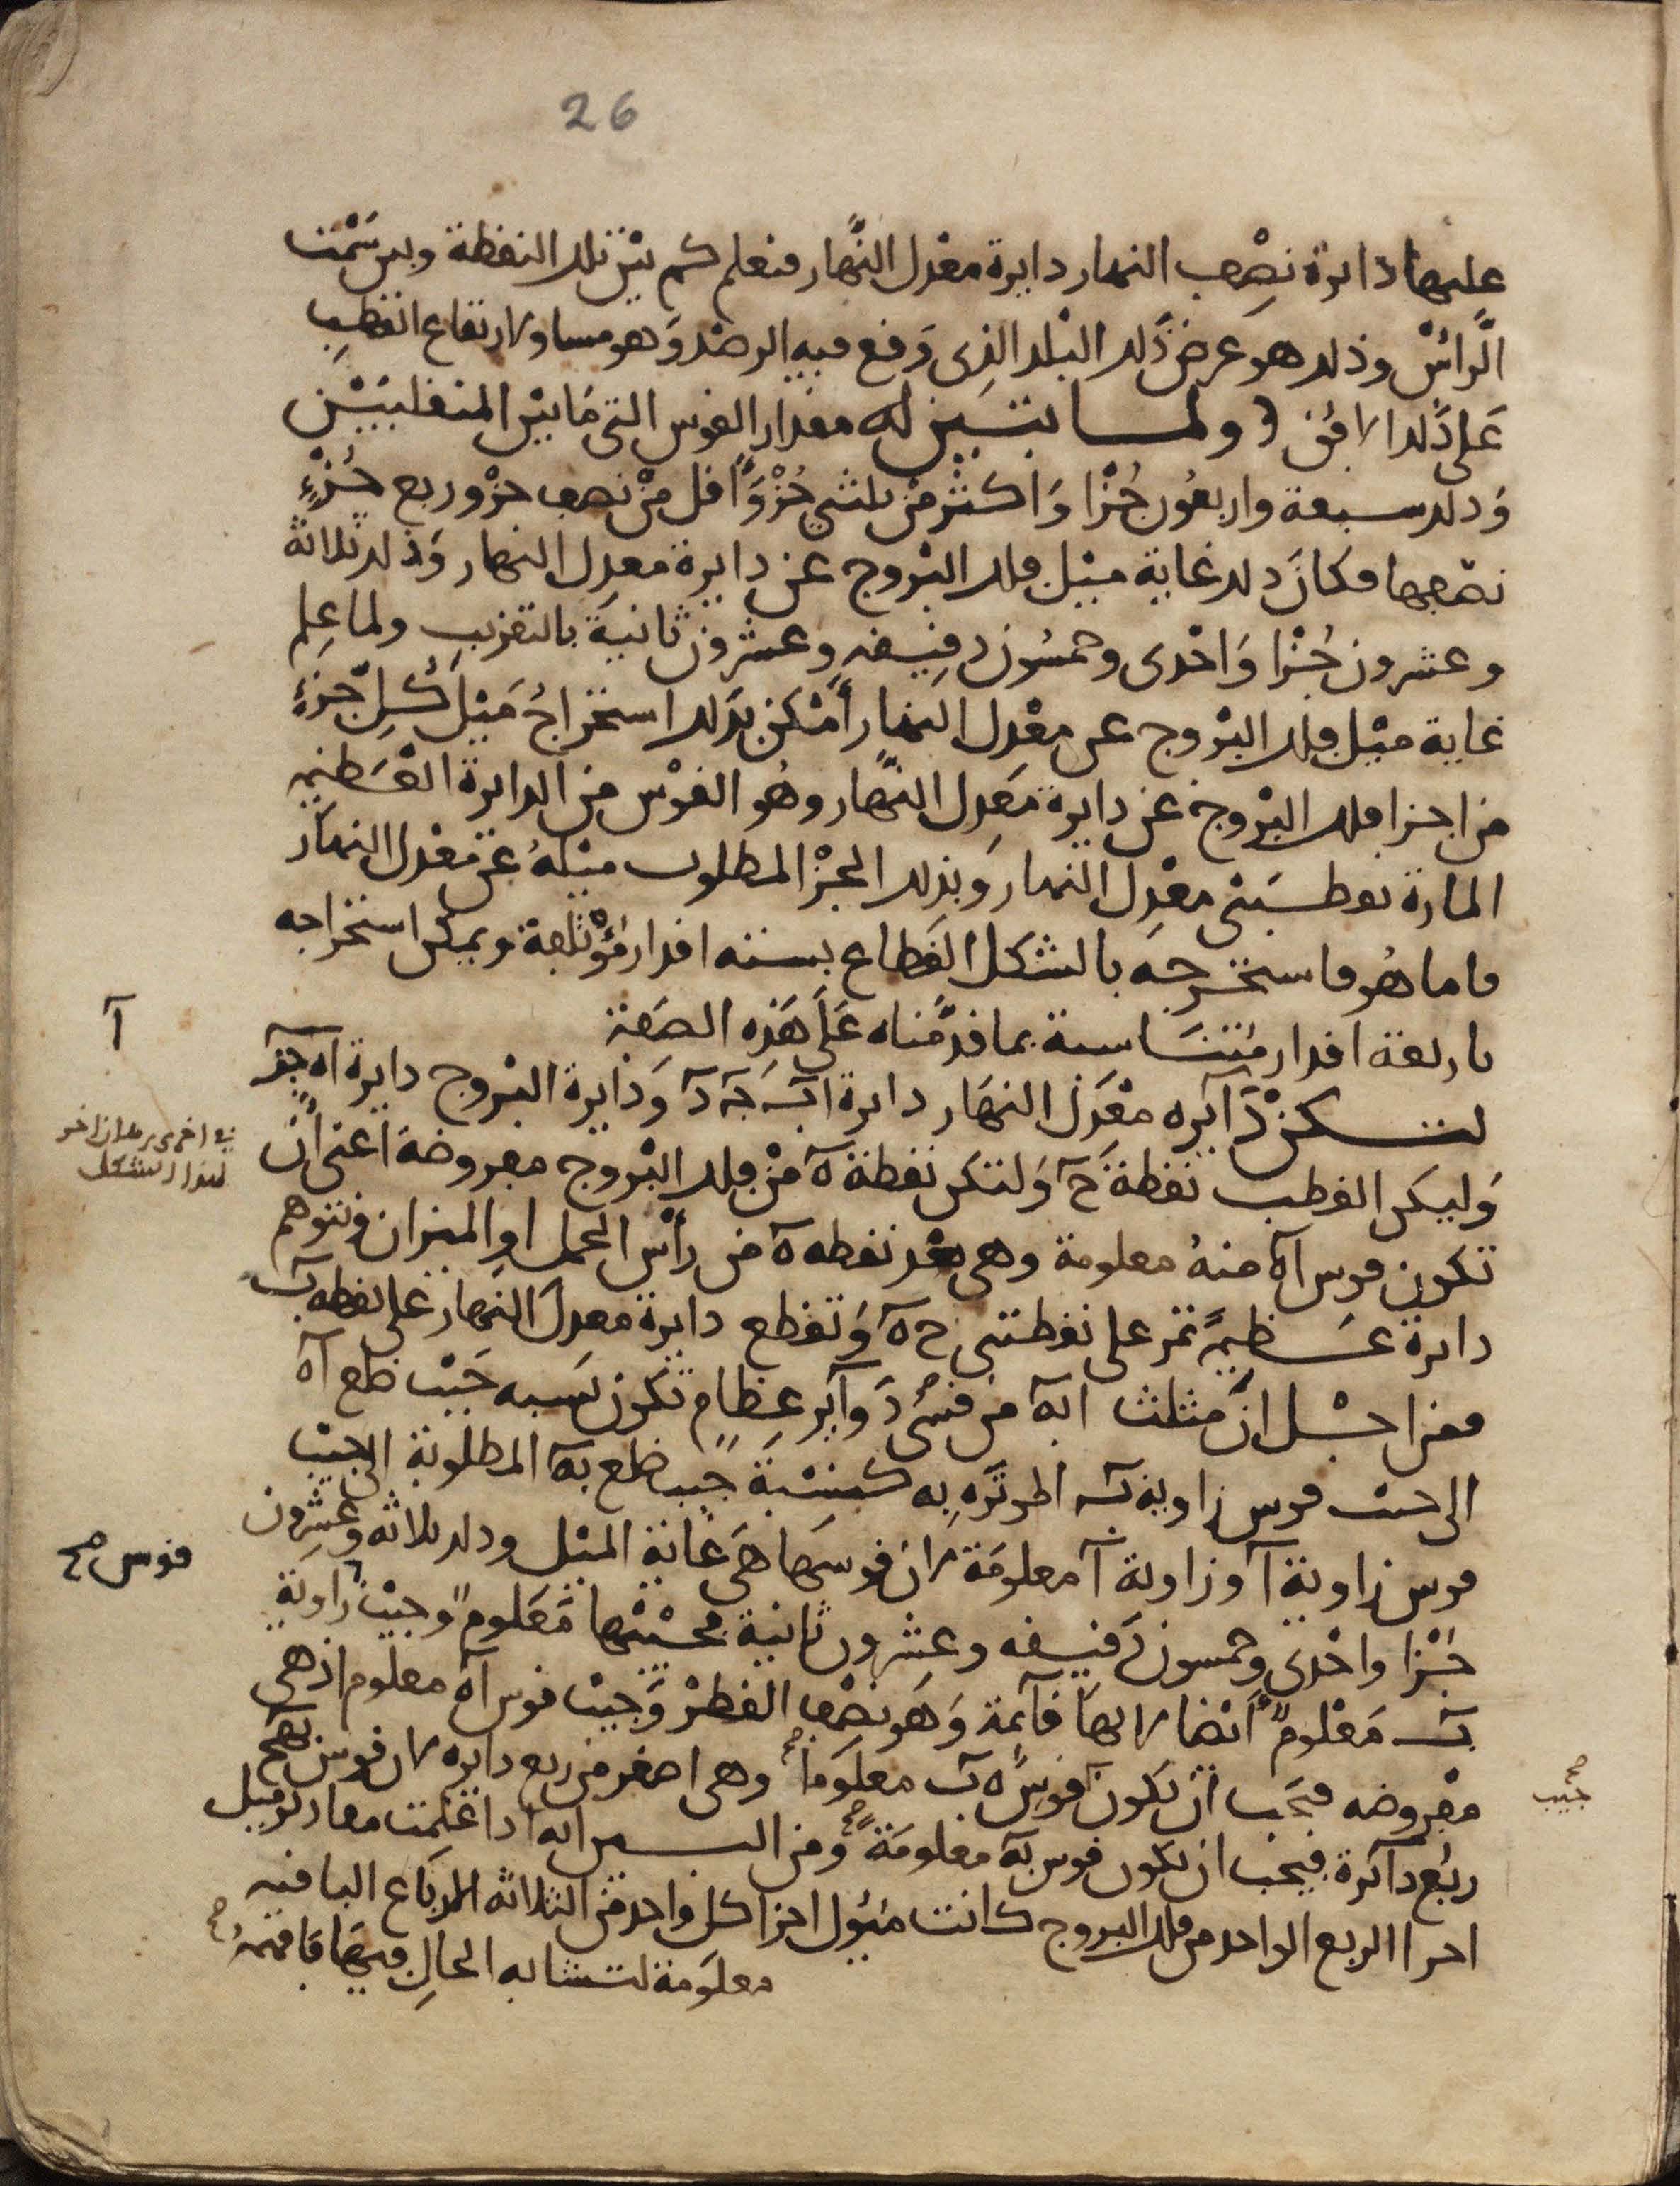 26
عليها دايرة نصف النهار دايرة معدل النهار فنعلم كم بين تلك النقطة وبين سمت
الراس وذلك هو عرض ذلك البلد الذى وقع فيه الرصد وهو مساو لارتفاع القطب
على ذلك الافق ولما تبين له مقدار القوس التى ما بين المنقلبين
وذلك سبعة واربعون جزا واكثر من ثلثى جزو واقل من نصف جزو وربع جزء
نصفها فكان ذلك غاية ميل فلك البروج عن دايرة معدل النهار وذلك ثلاثة
وعشرون جزا واحدى وخمسون دقيقه وعشرون ثانية بالتقريب ولما علم
غاية ميل فلك البروج عن معدل النهار أمكن بذلك استخراج ميل كل جزء
من اجزا فلك البروج عن دايرة معدل النهار وهو القوس من الدايرة العظيمه
المارة بقطبى معدل النهار وبذلك الجز المطلوب ميله عن معدل النهار
فاما هو فاستخرجه بالشكل القطاع بسته اقدار مؤتلفة ويمكن استخراجه
باربعة اقدار متناسبة بما قدمناه على هذه الصفة
لتكن دآيره معدل النهار دايرة اب جـ د ودايرة البروج دايرة اه جـ
وليكن القطب نقطة ح ولتكن نقطة ه من فلك البروج مفروضة اعنى ان
تكون قوس اه منه معلومة وهى بعد نقطه ه من رأس الحمل او الميزان ونتوهم
دايرة عظيمة تمر على نقطتى ح ه وتقطع دايرة معدل النهار على نقطه ب
فمن اجل ان مثلث ابه من قسى دوآير عظام تكون نسبه جيب ضلع اه
الى جيب قوس زاوية ب التى توتره به كنسبة جيب ضلع به المطلوبة الى جيب
قوس زاوية آ وزاوية آ معلومة لان قوسها هى غاية الميل وذلك ثلاثه وعشرون
جزا واحدى وخمسون دقيقه وعشرون ثانية فجيبها معلوم وجيب زاوية
ب معلوم أيضا لانها قآئمة وهو نصف القطر وجيب قوس اه معلوم اذ هى
مفروضه فيجب ان يكون قوس ه ب معلوما وهى اصغر من ربع دايره لان قوس بهح
ربع دآئرة فيجب ان تكون قوس به معلومة ومن البين انه اذا علمت مقادير ميل
اجزا الربع الواحد من فلك البروج كانت ميول اجزا كل واحد من الثلاثه الارباع الباقيه
معلومة لتشابه الحال فيها فافهمه
آ
قوس صح
صح
جيب